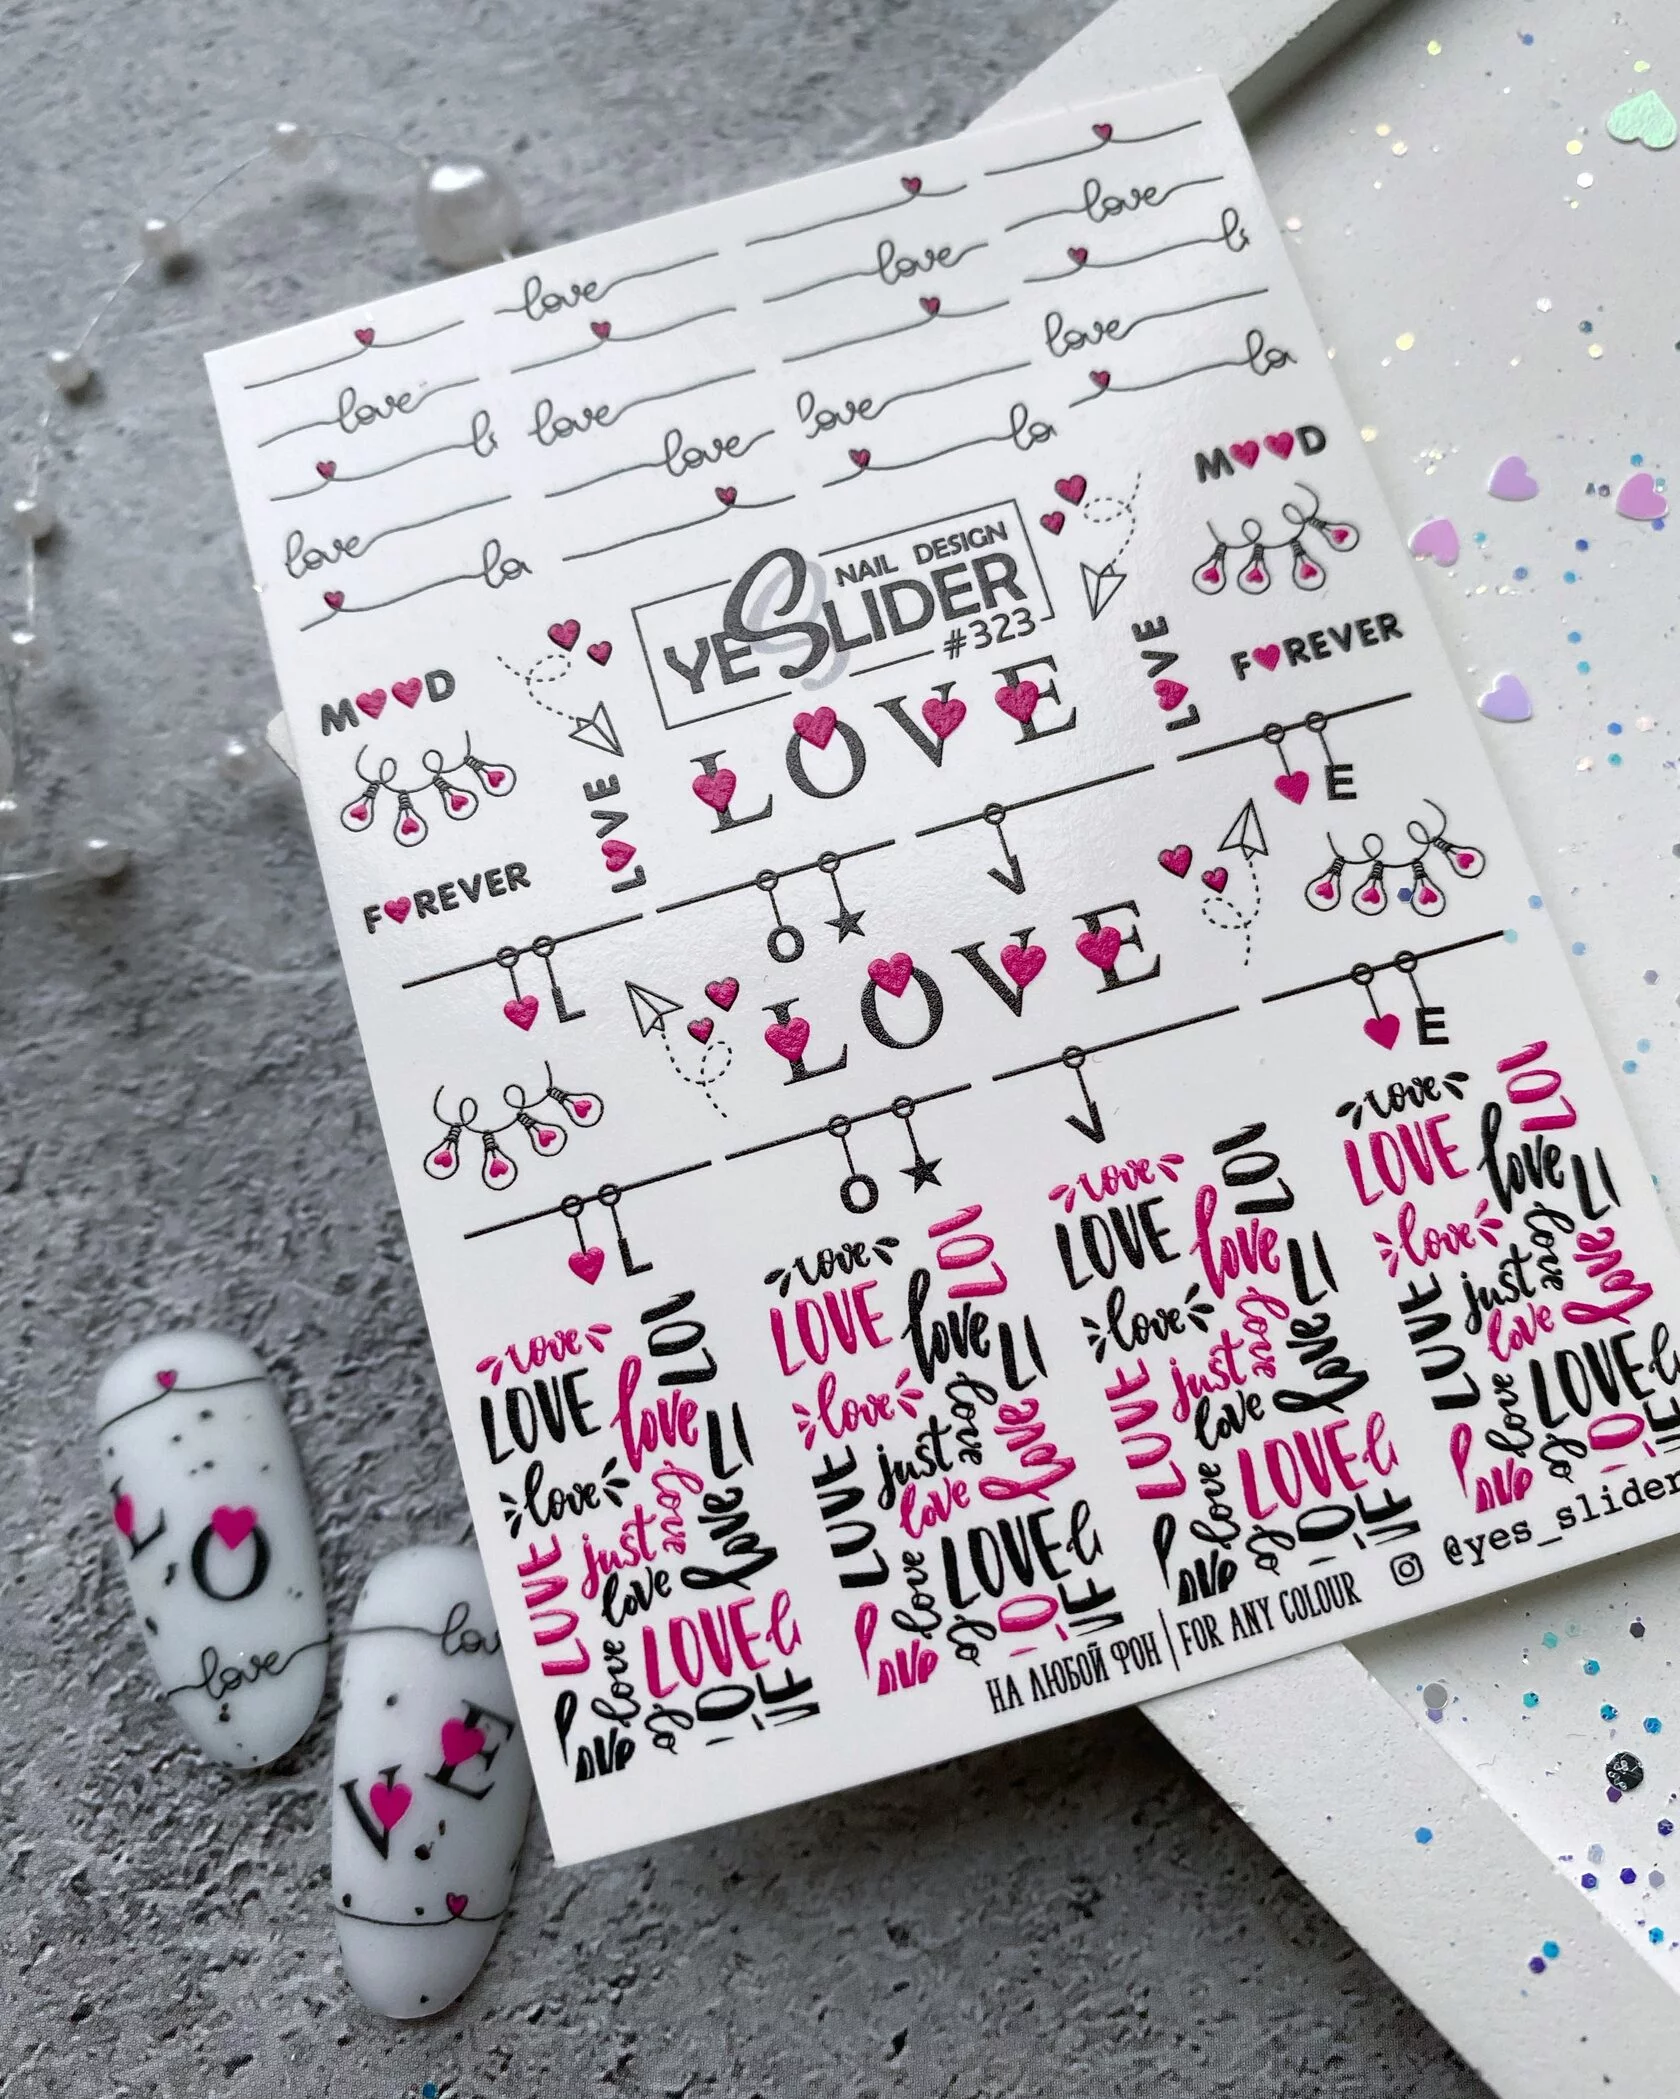 love
love
love
love
love
love
love
love
love
lo
lo
lo
YESLIDER
NAIL DESIGN
#323
MOOD
MOOD
FOREVER
FOREVER
LOVE
LOVE
LOVE
LOVE
L O V E
L O V E
love
LOVE
love
love
LOVE
just
love
love
love
love
LOVE
love
LOVE
love
love
LOVE
just
love
love
love
love
LOVE
love
LOVE
love
love
LOVE
just
love
love
love
love
LOVE
love
LOVE
love
love
LOVE
just
love
love
love
love
LOVE
НА ЛЮБОЙ ФОН | FOR ANY COLOUR
@yes_slider
L O
love
lov
V E